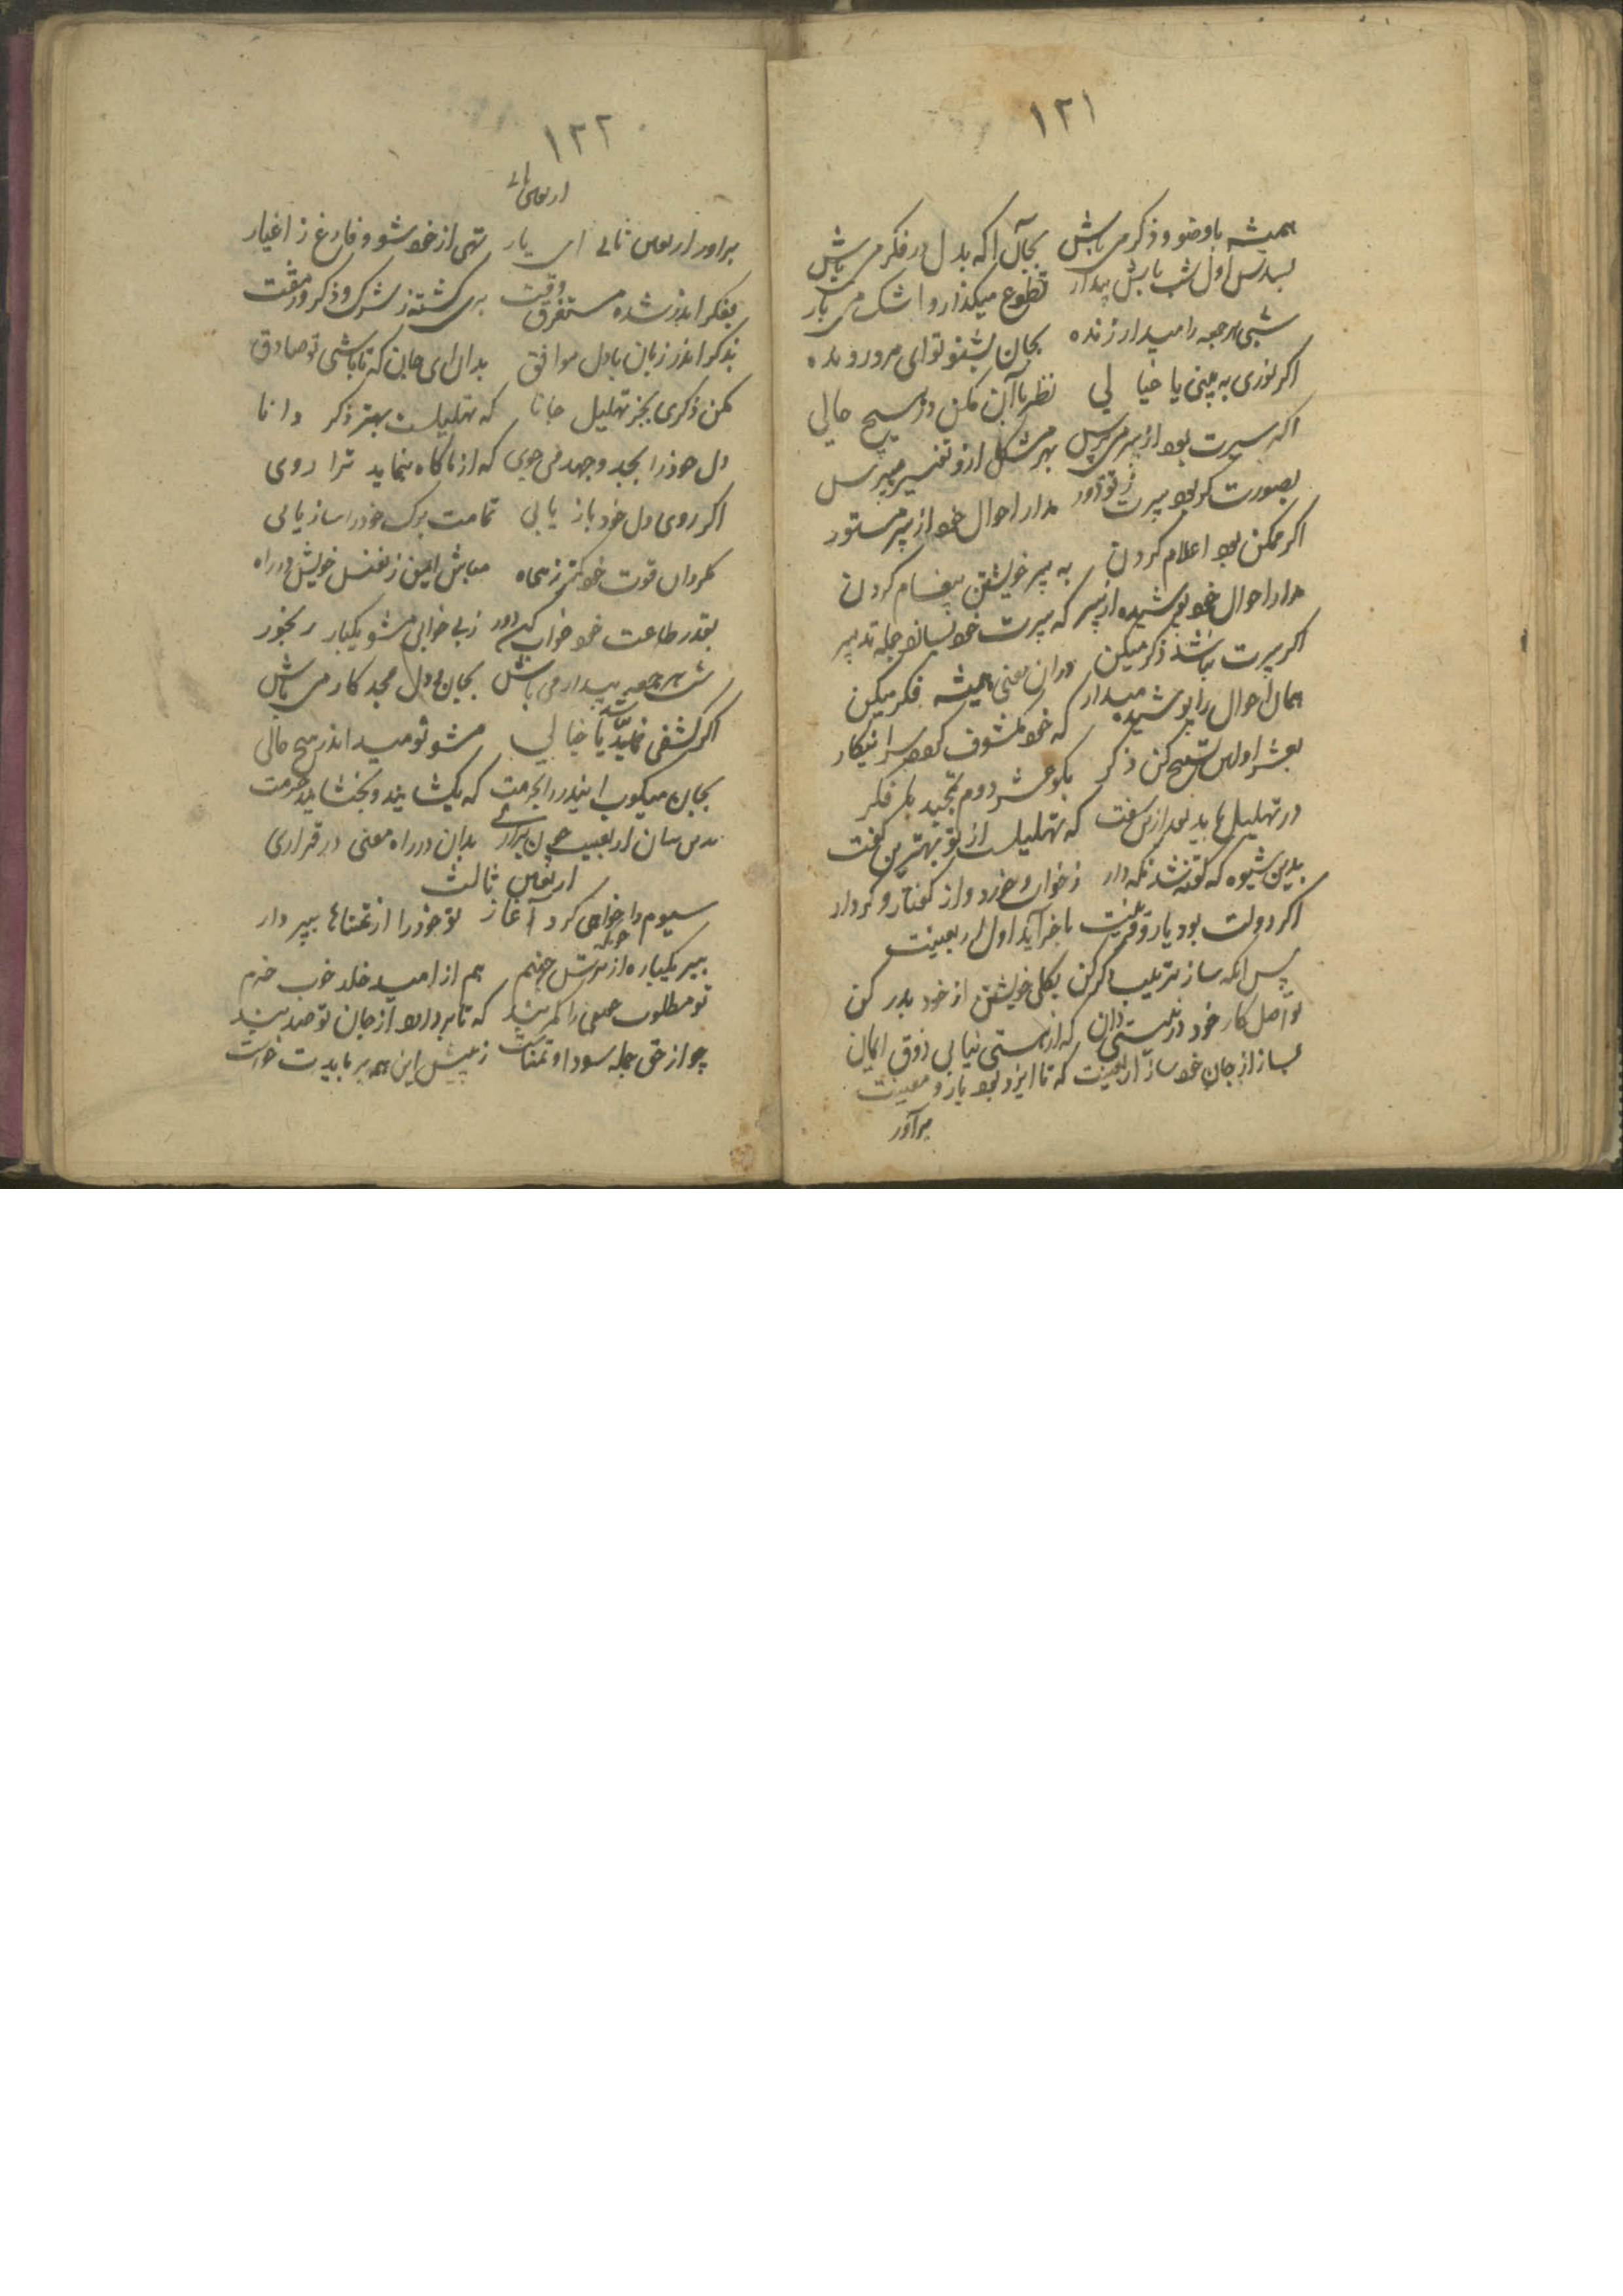 ۱۲۱
همیشه باوضو و ذکر می باش بجان اکه بدل در فکر می باش
اول شب باش بیدار تطوع میکذار و اشک می بار
شبی هر جمعه را میدار زنده بجان بشنو توای مرد رونده
اکر نوری به بینی یا خیا لی نظر باآن مکن در هیچ حالی
اکر پیرت بود از پیر می پرس بهر مشکل ازو تفسیر میپرس
بصورت کر بود پیرت ز تو دور مدار احوال خود از پیر مستور
اکر ممکن بود اعلام کردن به پیر خویشتن پیغام کردن
مدار احوال خود پوشیده از پیر که پیرت خود بسازد جمله تدبیر
اکر پیرت نباشد ذکر میکن دران معنی همیشه فکر میکن
همان احوال را پوشیده میدار که خود مکشوف کردد سر انیکار
بعشر اولین تسبیح کن ذکر بکو عشر دوم تمجید با فکر
در تهلیل باید بعد ازین سفت که تهلیلست از تو بهترین کفت
بدین شیوه که کفته شد نکه دار ز خواب و خورد و از کفتار و کردار
اکر دولت بود یار و قرینت باخر آید اول اربعینت
پس انکه ساز ترتیب دکر کن بکلی خویشتن از خود بدر کن
تو اصل کار خود در نیستی دان که از هستی نیابی ذوق ایمان
بساز از جان خود ساز اربعینت که تا ایزد بود یار و معینت
برآور
۱۲۲
اربعین ثانی
براور اربعین ثانی ای یار تهی از خود شو و فارغ ز اغیار
بفکر اندر شده مستغرق وقت بری کشته ز شرک و ذکر و
بذکر اندر زبان بادل موافق بدان ای جان که تاباشی تو صادق
مکن ذکری بجز تهلیل جانا که تهلیلست بهتر ذکر دانا
دل خودرا بجد وجهد می جوی که از ناکاه بنماید ترا روی
اکر روی دل خود باز یابی تمامت برک خودرا ساز یابی
مکردان قوت خود کمتر ز مباش ایمن ز نفس خویش در راه
بقدر طاعت خود خواب کم دور ز بی خوابی مشو یکبار رنجور
شب هر جمعه بیدار می باش بجان و دل مجد کار می باش
اکر کشفی نماید یا خیا لی مشو نومید اندر هیچ حالی
بجان میکوب این در را بحرمت که بکشایند و بخشایند حرمت
بدین سان اربعین چون براری بدان در راه معنی در قراری
اربعین ثالث
سیوم را خواهی کرد آغاز تو خودرا از تمناها بپرداز
ببر یکباره از جهنم هم از امید خلد خوب خرم
تو مطلوب را کمر بند که تا بردارد از جان تو صد بند
چو از حق جمله سودا و تمناست ز پیش این همه بر بایدت خواست